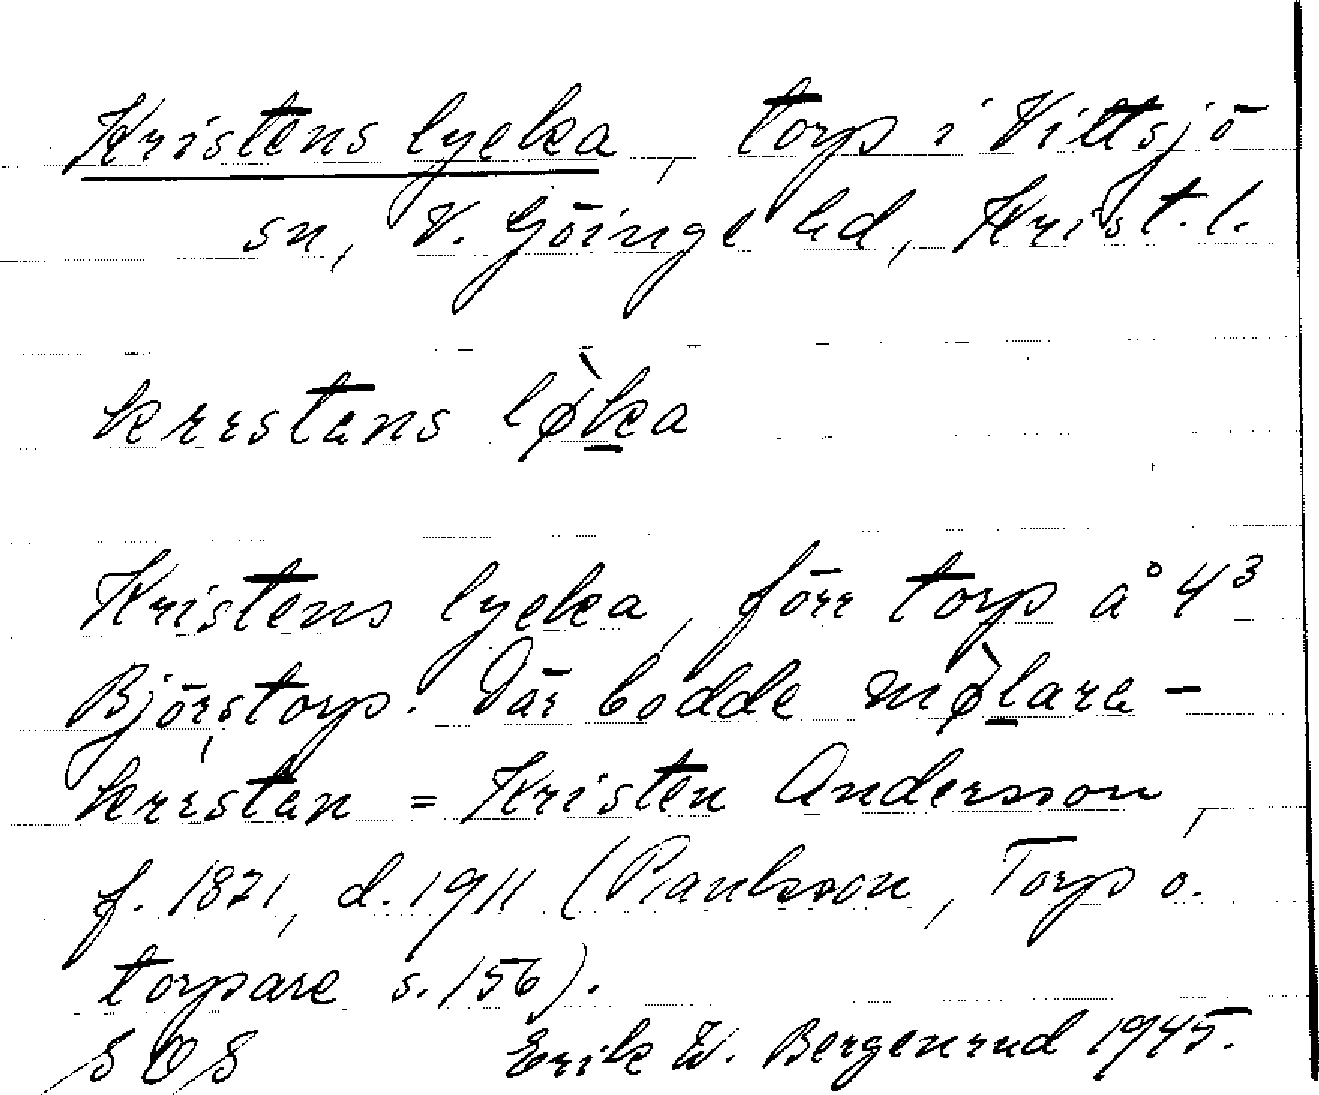 Kristens lycka, torp i Vittsjö
sn, V. Göinge hd, Krist. l.
krestans lø̀ka
Kristens lycka, förr torp å 4³
Björstorp. Där bodde mø̀lara-
krestan = Kristen Andersson,
f. 1821, d. 1911 (Paulsson, Torp o.
torpare s. 156).
SOS Erik W. Bergenrud 1945.